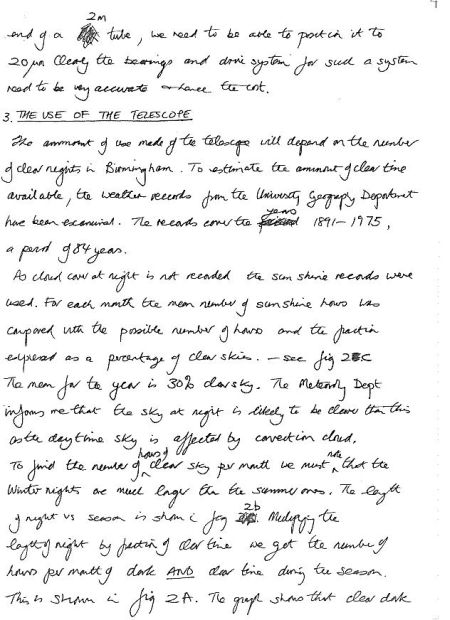 end of a 2m tube, we need to be able to position it to
20μm Clearly the bearings and drive system for such a system
need to be very accurate & hence the cost.
3. THE USE OF THE TELESCOPE
The ammount of use made of the telescope will depend on the number
of clear nights in Birmingham. To estimate the ammount of clear time
available, the weather records from the University Geography Department
have been examined. The records cover the years 1891-1975,
a period of 84 years.
As cloud cover at night is not recorded the sun shine records were
used. For each month the mean number of sunshine hours was
compared with the possible number of hours and the fraction
expressed as a percentage of clear skies. - see fig 2C
The mean for the year is 30% clear sky. The Dept
informs me that the sky at night is likely to be clearer than this
as the day time sky is affected by convection cloud.
To find the number of hours of clear sky per month we must note that the
winter nights are much longer than the summer ones. The length
of night vs season is shown in fig 2b. Multiplying the
length of night by fraction of clear time we get the number of
hours per month of dark AND clear time during the season.
This is shown in fig 2A. The graph shows that clear dark